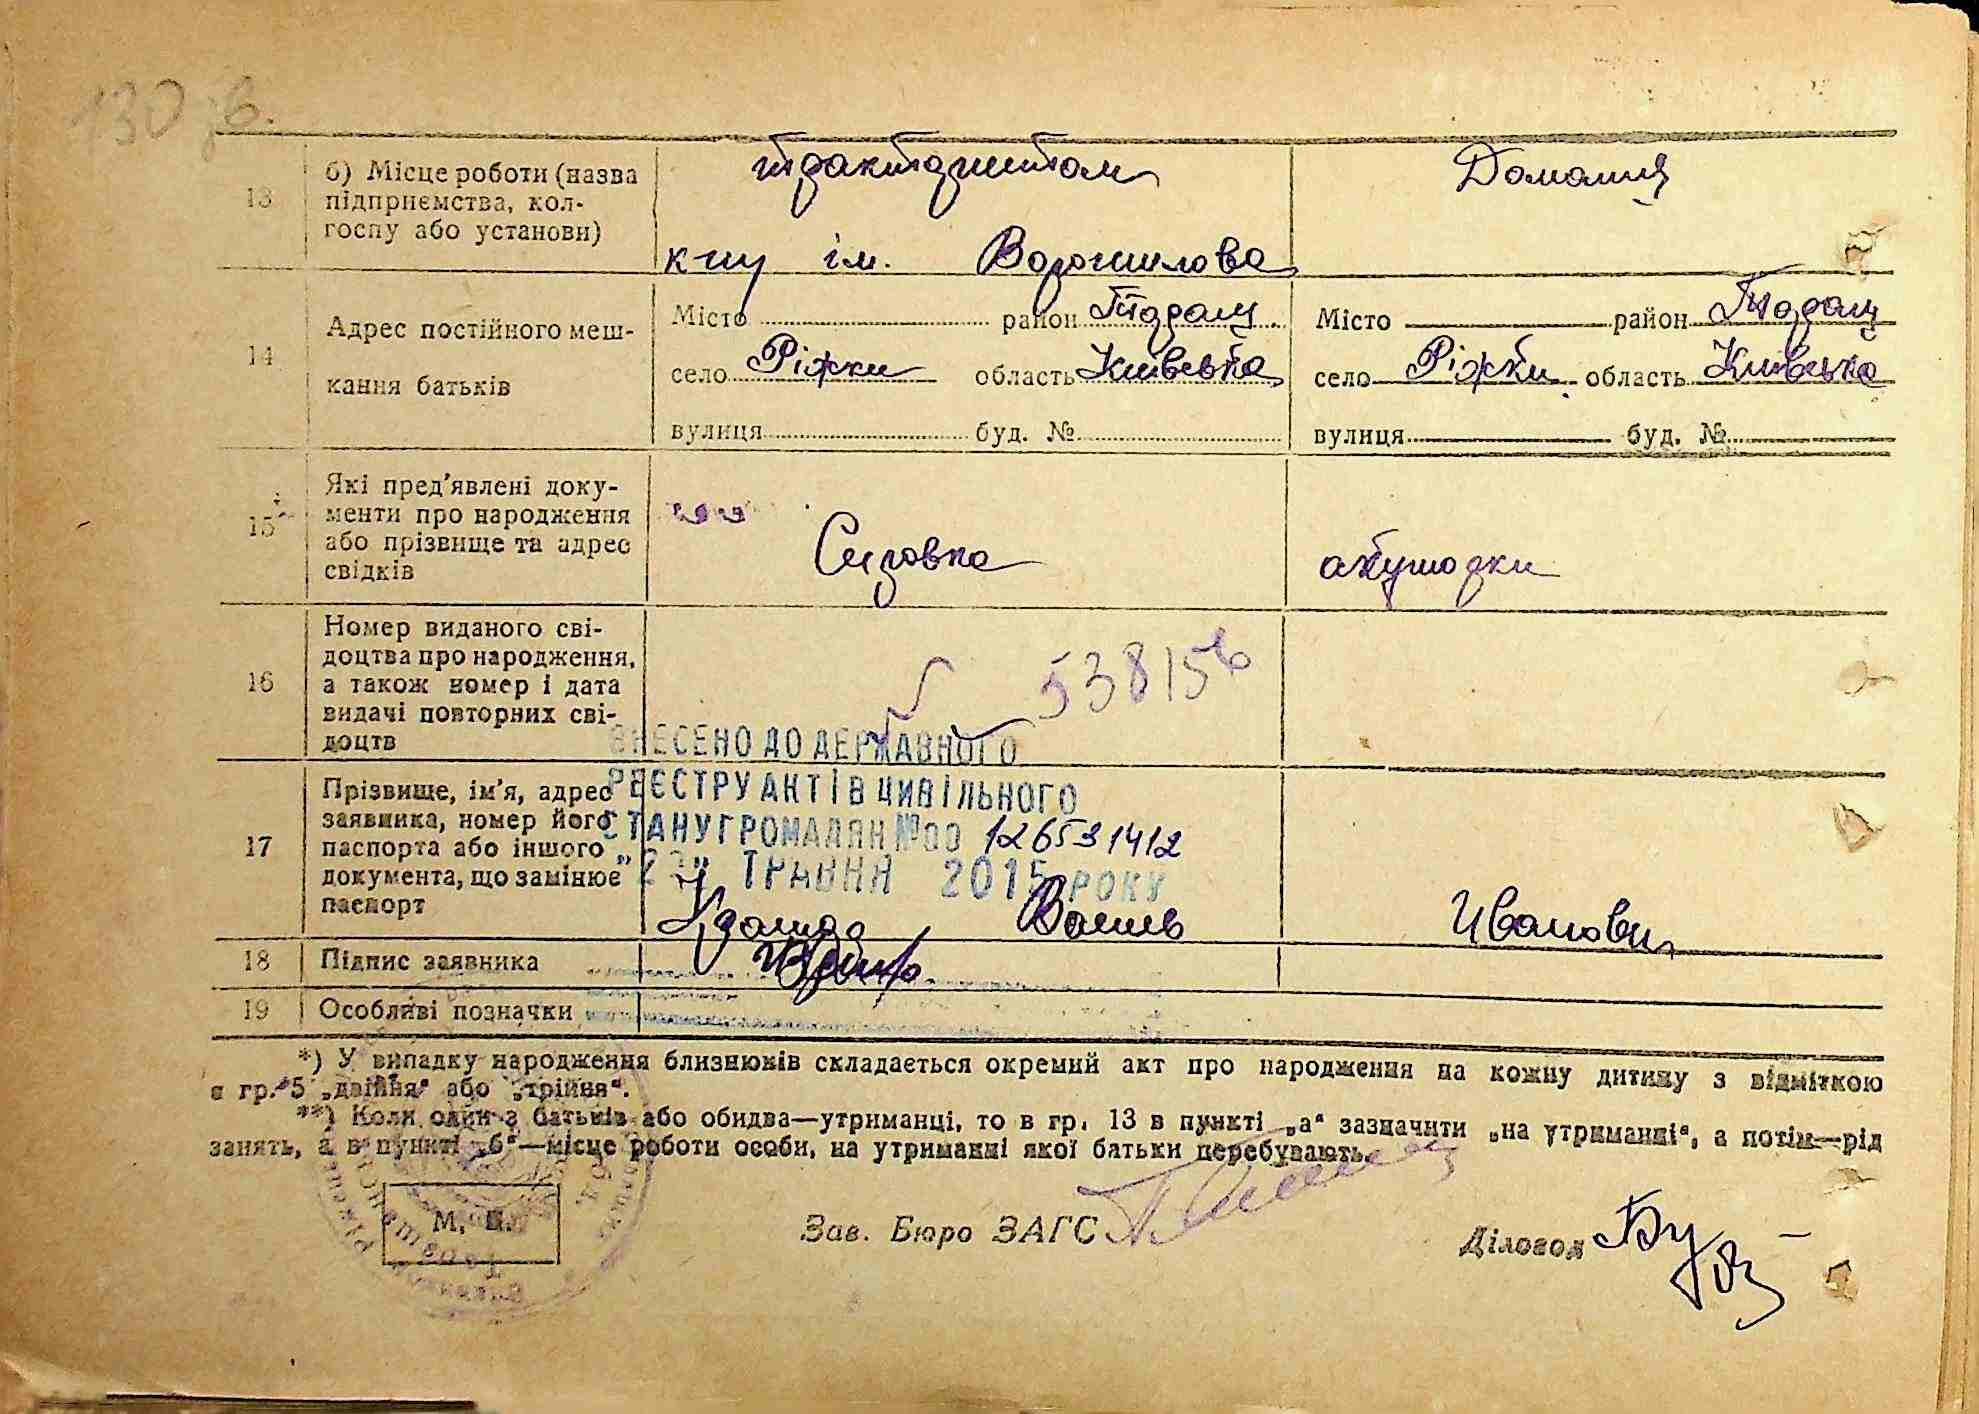 130 зв.
13 б) Місце роботи (назва підприємства, колгоспу або установи) Домашня
к-гу ім. Ворошилова
14 Адрес постійного меш-
кання батьків
Місто район Таращ. Місто район Таращ
село Ріжки область Київська село Ріжки область Київська
вулиця буд. № вулиця буд. №
15 Які пред’явлені доку-
менти про народження
або прізвище та адрес
свідків
Справка акушорки
16 Номер виданого сві-
доцтва про народження,
а також номер і дата
видачі повторних сві-
доцтв
538156
ВНЕСЕНО ДО ДЕРЖАВНОГО
РЕЄСТРУ АКТІВ ЦИВІЛЬНОГО
СТАНУ ГРОМАДЯН №00 126531412
ТРАВНЯ 2015 РОКУ
17 Прізвище, ім’я, адрес
заявника, номер його
паспорта або іншого
документа, що замінює
паспорт
Иванович
18 Підпис заявника
19 Особливі позначки
*) У випадку народження близнюків складається окремий акт про народження на кожну дитину з відміткою
в гр. 5 „двійня“ або „трійня“.
**) Коли один з батьків або обидва—утриманці, то в гр. 13 в пункті „а“ зазначити „на утриманні“, а потім—рід
занять, а в пункті „б“—місце роботи особи, на утриманні якої батьки перебувають.
М. П.
Зав. Бюро ЗАГС
Діловод